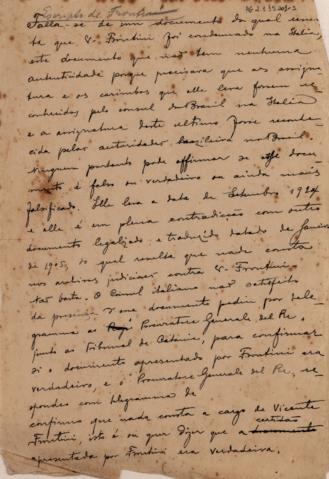 Exemplo de Frontini
Falla-se de um documento do qual consta
que V. Frontini foi condemnado na Italia,
este documento que não tem nenhuma
autenticidade porque precisava que as assigna-
turas e os carimbos que elle leva fossem re-
conhecidos pelo consul do Brasil na Italia
e a assignatura deste ultimo fosse reconhe-
cida pelas autoridades brasileira no Brasil.
Ninguem portanto pode affirmar se esse docu-
mento é falso ou verdadeiro ou ainda mais
falsificado. Elle leva a data de Setembro 1924
e elle é em plena contradicção com outro
documento legalizado e traduzido datado de Janeiro
de 1905, do qual resulta que nada consta
nos archivos judiciaes contra V. Frontini
tal data. O Consul italiano não satisfeito
da precisão d'esse documento pediu por tele-
gramma ao Procuratore Generale del Re,
junto ao Tribunal de Catania, para confirmar
si o documento apresentado por Frontini era
verdadeiro, e o Procuratore Generale del Re, re-
spondeu com telegramma de
confirmo que nada consta a cargo de Vicente
Frontini, isto é ou quer dizer que a certidão
apresentada por Frontini era verdadeira.